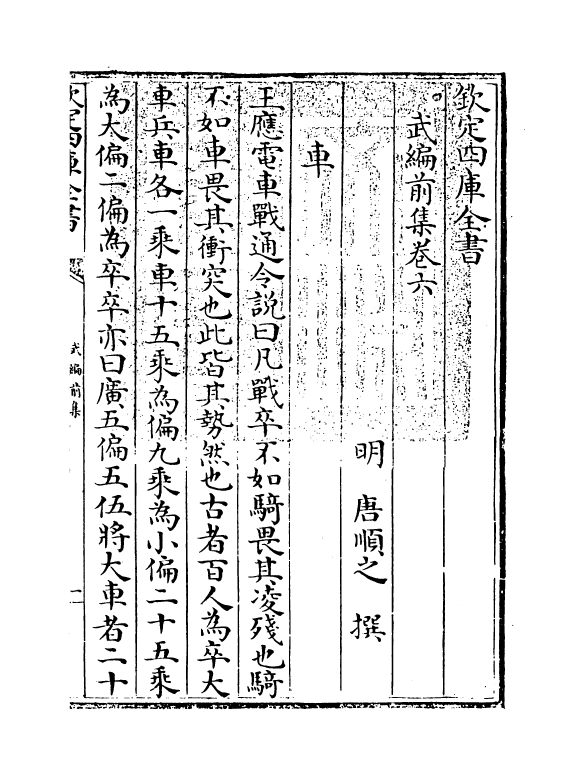 欽定四庫全書
武編前集卷六
明 唐順之 撰
車
王應電車戰通令說曰凡戰卒不如騎畏其凌殘也騎
不如車畏其衝突也此皆其勢然也古者百人為卒大
車兵車各一乘車十五乘為偏九乘為小偏二十五乘
為大偏二偏為卒卒亦曰廣五偏五伍將大車者二十
欽定四庫全書
武編前集